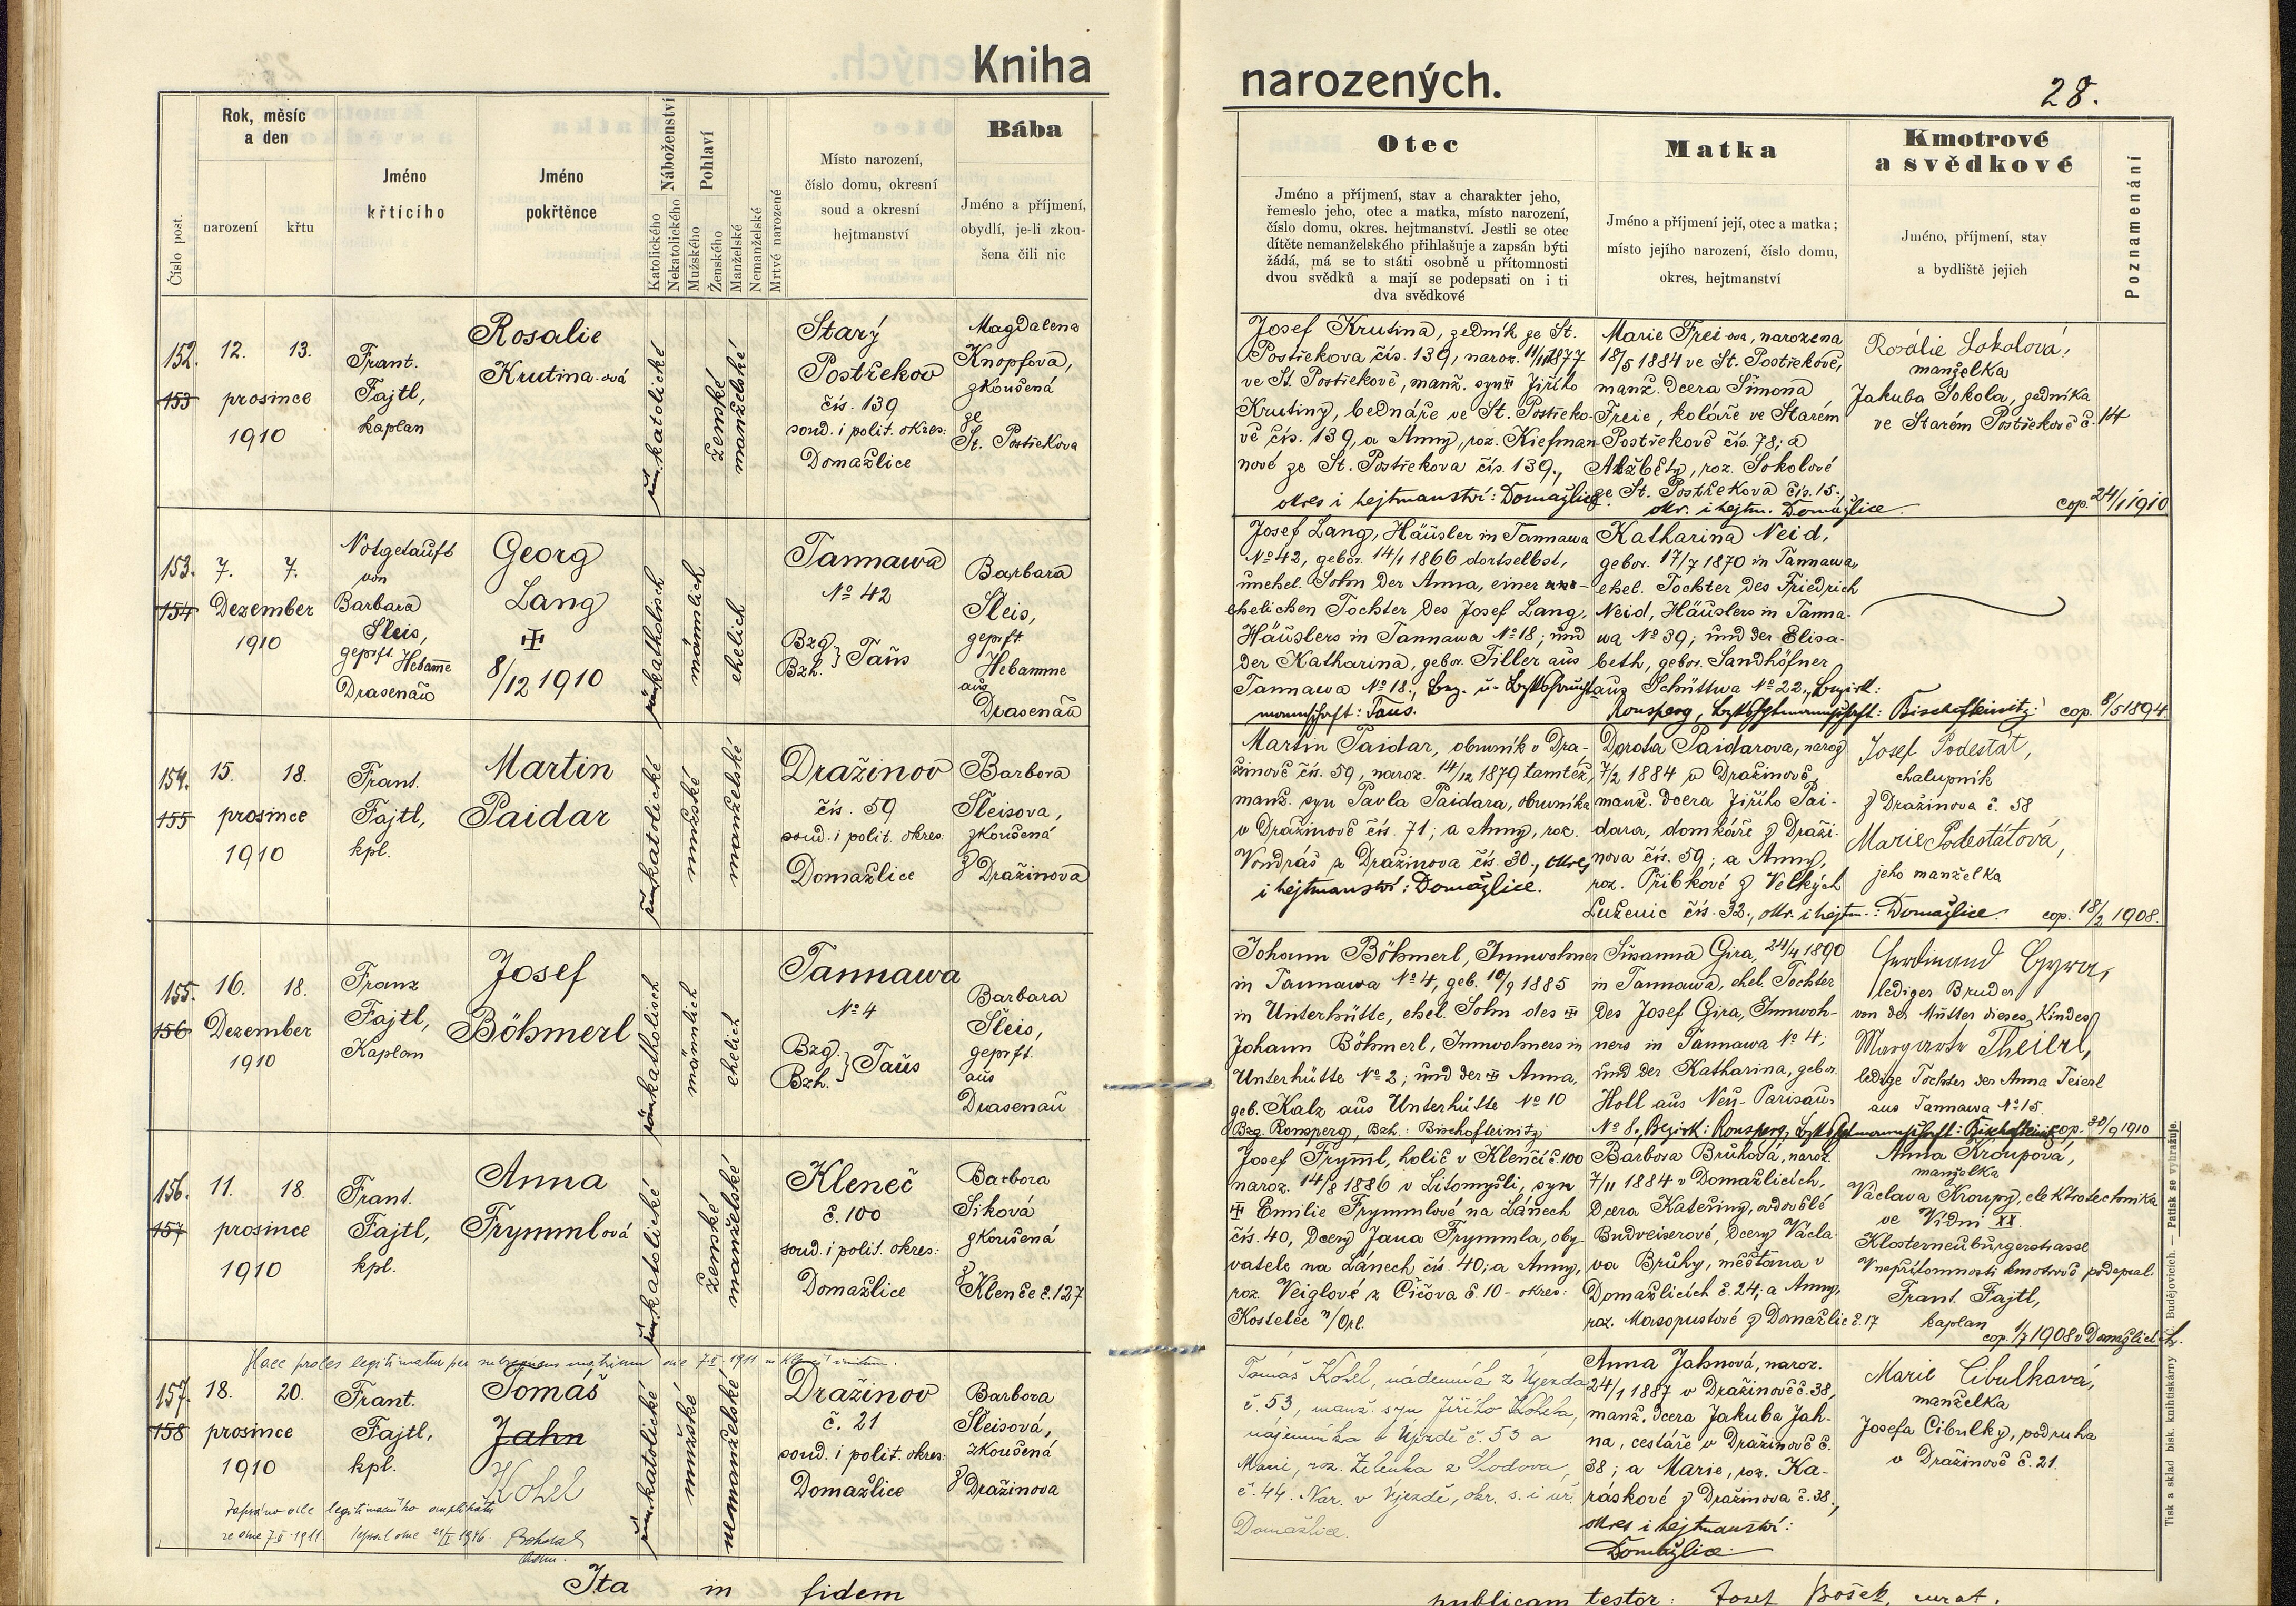 Kniha
narozených.
28.
Číslo post.
Rok, měsíc
a den
narození
křtu
Jméno
křtícího
Jméno
pokřtěnce
Náboženství
Katolického
Nekatolického
Pohlaví
Mužského
Ženského
Manželské
Nemanželské
Mrtvě narozené
Místo narození,
číslo domu, okresní
soud a okresní
hejtmanství
Bába
Jméno a příjmení,
obydlí, je-li zkou-
šena čili nic
Otec
Jméno a příjmení, stav a charakter jeho,
řemeslo jeho, otec a matka, místo narození,
číslo domu, okres. hejtmanství. Jestli se otec
dítěte nemanželského přihlašuje a zapsán býti
žádá, má se to státi osobně u přítomnosti
dvou svědků a mají se podepsati on i ti
dva svědkové
Matka
Jméno a příjmení její, otec a matka;
místo jejího narození, číslo domu,
okres, hejtmanství
Kmotrové
a svědkové
Jméno, příjmení, stav
a bydliště jejich
Poznamenání
152.
153
12. 13.
prosince
1910
Frant.
Fajtl,
kaplan
Rosalie
Krutina-ová
řím.katolické
ženské
manželské
Starý
Postřekov
čís. 139
soud. i polit. okres:
Domažlice
Magdalena
Knopfova,
zkoušená
ze
St. Postřekova
Josef Krutina, zedník ze St.
Postřekova čís. 139, naroz. 11/11 1877
ve St. Postřekově, manž. syn Jiřího
Krutiny, bednáře ve St. Postřeko-
vě čís. 139, a Anny, roz. Kiefman-
nové ze St. Postřekova čís. 139.,
okres i hejtmanství: Domažlice.
Marie Frei-ova, narozena
18/5 1884 ve St. Postřekově,
manž. dcera Šimona
Freie, koláře ve Starém
Postřekově čís. 78; a
Alžběty, roz. Sokolové
ze St. Postřekova čís. 15.,
okr. i hejtm. Domažlice.
Rosálie Sokolová,
manželka
Jakuba Sokola, zedníka
ve Starém Postřekově č. 14
cop. 24/1 1910
153.
154
7. 7.
Dezember
1910
Notgetauft
von
Barbara
Sleis,
geprft. Hebamme
Drasenau
Georg
Lang
8/12 1910
römkatholisch
männlich
ehelich
Tannawa
№ 42
Bzg.
Bzh. } Taus
Barbara
Sleis,
geprft
Hebamme
aus
Drasenau
Josef Lang, Häusler in Tannawa
№ 42, gebor. 14/1 1866 dortselbst,
unehel. Sohn der Anna, einer
ehelichen Tochter des Josef Lang,
Häuslers in Tannawa № 18; und
der Katharina, gebor. Tiller aus
Tannawa № 18.,
mannschaft: Taus.
Katharina Neid,
gebor. 17/7 1870 in Tannawa,
ehel. Tochter des Friedrich
Neid, Häuslers in Tanna-
wa № 39; und der Elisa-
beth, gebor. Sandhöfner
aus Schüttwa № 22., Bezirk:
Ronsperg, Bischofteinitz.
cop. 8/5 1894.
154.
155
15. 18.
prosince
1910
Frant.
Fajtl,
kpl.
Martin
Paidar
římkatolické
mužské
manželské
Dražinov
čís. 59
soud. i polit. okres.
Domažlice
Barbora
Sleisova,
zkoušená
z Dražinova
Martin Paidar, obuvník v Dra-
žinově čís. 59, naroz. 14/12 1879 tamtéž,
manž. syn Pavla Paidara, obuvníka
v Dražinově čís. 71; a Anny, roz.
Vondráš z Dražinova čís. 30., okres
i hejtmanství: Domažlice.
Dorota Paidarova, naroz.
7/2 1884 v Dražinově,
manž. dcera Jiřího Pai-
dara, domkáře z Draži-
nova čís. 59; a Anny,
roz. Přibkové z Velkých
Luženic čís. 32., okr. i hejtm.: Domažlice.
Josef Podestát,
chalupník
z Dražinova č. 58
Marie Podestátová,
jeho manželka
cop. 18/2 1908.
155.
156
16. 18.
Dezember
1910
Franz
Fajtl,
Kaplan
Josef
Böhmerl
römkatholisch
männlich
ehelich
Tannawa
№ 4
Bzg.
Bzh. } Taus
Barbara
Sleis,
geprft.
aus
Drasenau
Johann Böhmerl, Innwohner
in Tannawa № 4, geb. 10/9 1885
in Unterhütte, ehel. Sohn des
Johann Böhmerl, Innwohners in
Unterhütte № 2; und der Anna,
geb. Kalz aus Unterhütte № 10
Bzg. Ronsperg, Bzh.: Bischofteinitz
Susanna Gira, 24/4 1890
in Tannawa, ehel. Tochter
des Josef Gira, Innwoh-
ners in Tannawa № 4;
und der Katharina, gebor.
Holl aus Neu-Parisau,
№ 8., Bezirk: Ronsperg,
Ferdinand Gyra,
lediger Bruder
von der Mutter dieses Kindes
Margareta Theierl,
ledige Tochter der Anna Teierl
aus Tannawa № 15.
cop. 30/9 1910
156.
157
11. 18.
prosince
1910
Frant.
Fajtl,
kpl.
Anna
Frymmlová
římkatolické
ženské
manželské
Kleneč
č. 100
soud. i polit. okres:
Domažlice
Barbora
Siková
zkoušená
z
Klenče č. 127
Josef Frymml, holič v Klenčí č. 100
naroz. 14/8 1886 v Litomyšli, syn
Emilie Frymmlové na Lánech
čís. 40, dcery Jana Frymmla, oby-
vatele na Lánech čís. 40; a Anny,
roz. Veiglové z Čičova č. 10 - okres:
Kostelec n/Orl.
Barbora Brůhová, naroz.
7/11 1884 v Domažlicích,
dcera Kateřiny, ovdovělé
Budveiserové, dcery Václa-
va Brůhy, měšťana v
Domažlicích č. 24; a Anny,
roz. Masopustové z Domažlic č. 17
Anna Kroupová,
manželka
Václava Kroupy, elektrotechnika
ve Vídni XX.
Klosterneuburgerstrasse
V nepřítomnosti kmotrově podepsal:
Frant. Fajtl,
kaplan
cop. 1/7 1908 v Domažlicích.
Haec proles legitimatur per subsequens matrimonium die 7.II.1911
157.
158
18. 20.
prosince
1910
Frant.
Fajtl,
kpl.
Tomáš
Jahn
Kohel
Zapsáno dle legitimačního
ze dne 7.II.1911.
římkatolické
mužské
nemanželské
Dražinov
č. 21
soud. i polit. okres:
Domažlice
Barbora
Sleisová,
zkoušená
z Dražinova
Tomáš Kohel, z Újezda
č. 53, manž. syn Jiřího Kohela,
nájemníka v Újezdě č. 53 a
Marie, roz. Zelenka z Chodova
č. 44. Nar. v Újezdě, okr. s. i úř.
Domažlice.
Anna Jahnová, naroz.
24/1 1887 v Dražinově č. 38,
manž. dcera Jakuba Jah-
na, cestáře v Dražinově č.
38; a Marie, roz. Ka-
ráskové z Dražinova č. 38.,
okres i hejtmanství:
Domažlice.
Marie Cibulková,
manželka
Josefa Cibulky, podruha
v Dražinově č. 21.
Ita in fidem
publicam testor: Josef Bošek, curat.
Tisk a sklad bisk. knihtiskárny v Č. Budějovicích. — Patisk se vyhražuje.